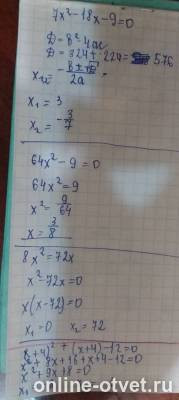 7x² - 18x - 9 = 0
D = b² 4ac
D = 324 + 252 = 576
x₁,₂ = -b ± √D / 2a
x₁ = 3
x₂ = -3/7
64x² - 9 = 0
64x² = 9
x² = 9/64
x = 3/8
8x² = 72x
x² - 72x = 0
x(x - 72) = 0
x₁ = 0 x₂ = 72
(x + 4)² + (x + 4) - 12 = 0
x² + 8x + 16 + x + 4 - 12 = 0
x² + 9x + 8 = 0
x₁
online-otvet.ru